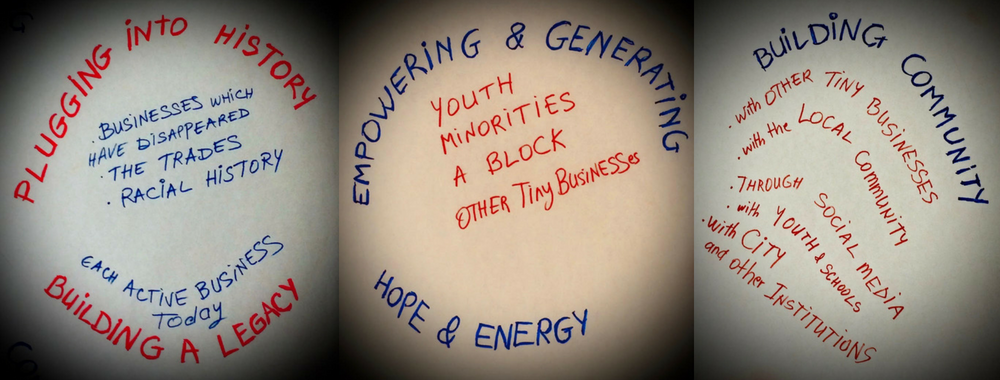 PLUGGING iNTO HiSTORY
. BUSINESSES WHICH
HAVE DISAPPEARED
. THE TRADES
. RACIAL HiSTORY
EACH ACTIVE BUSINESS
Today
BUiLDiNG A LEGACY
EMPOWERiNG & GENERATING
YOUTH
MiNORiTiES
A BLOCK
OTHER Tiny BUSiNESSes
HOPE & ENERGY
BUiLDiNG COMMUNiTY
. with OTHER TiNY BUSiNESSES
. with the LOCAL COMMUNiTY
. THROUGH SOCIAL MEDiA
. with YOUTH & SCHOOLS
. with CiTY
and other INSTiTUTiONS